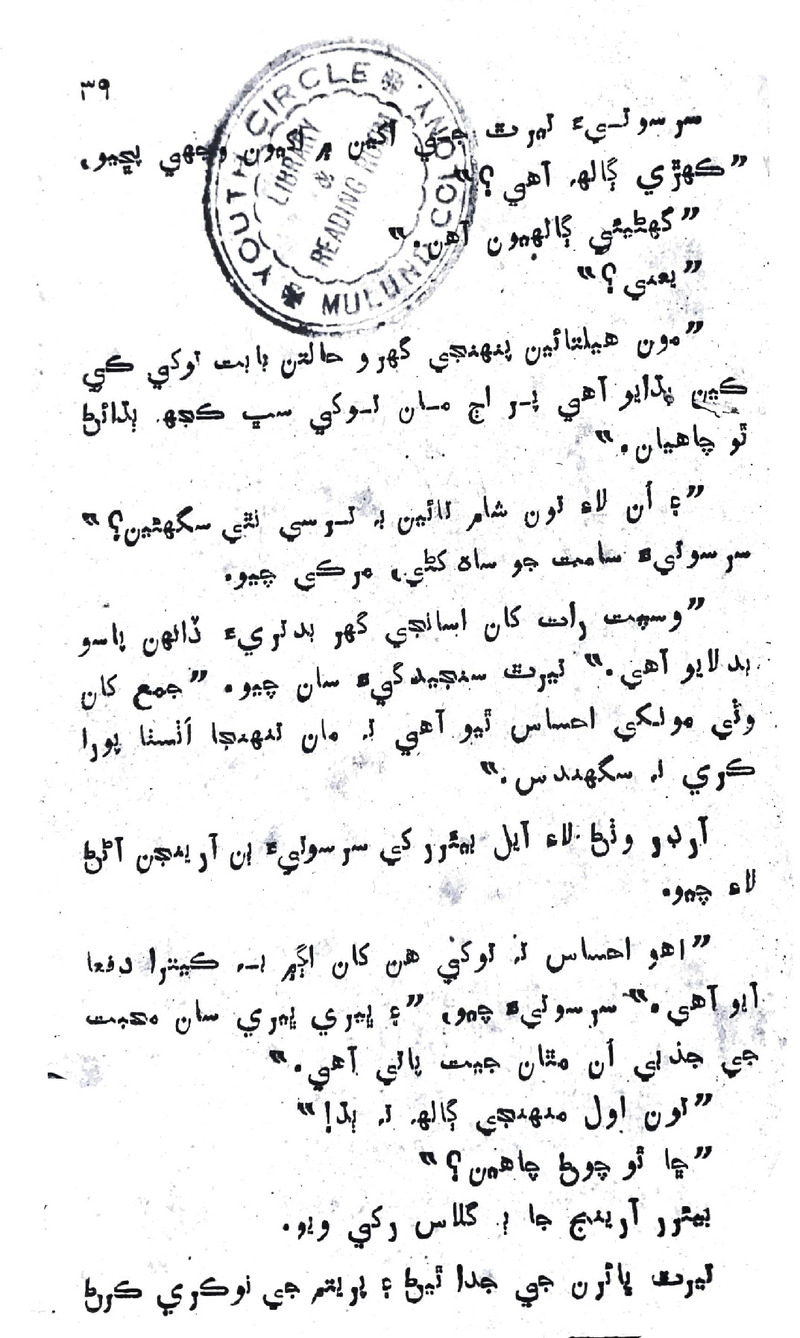 ٣٩
YOUTH CIRCLE
LIBRARY
&
READING ROOM
MULUND COLONY.
سرسوتيءَ تيرٿ جي اکين ۾ اکيون وجهي پڇيو،
”ڪهڙي ڳالهہ آهي؟“
”گھڻيئي ڳالهيون آهن.“
”يعني؟“
”مون هيلتائين پنهنجي گهرو حالتن بابت توکي ڪي
ڪين ٻڌايو آهي پر اڄ مان توکي سڀ ڪجهہ ٻڌائڻ
ٿو چاهيان.“
”۽ اُن لاءِ تون شام تائين بہ ترسي نٿي سگهئين؟“
سرسوتيءَ سامت جو ساھ کڻي، مرڪي چيو.
”وسپت رات کان اسانجي گهر بدتريءَ ڏانهن پاسو
بدلايو آهي.“ تيرٿ سنجيدگيءَ سان چيو. ”جمع کان
وٺي مونکي احساس ٿيو آهي تہ مان تنهنجا آسنا پورا
ڪري نہ سگهندس.“
آرڊر وٺڻ لاءِ آيل بيئرر کي سرسوتيءَ ٻن آرينجن آڻڻ
لاءِ چيو.
”اهو احساس تہ توکي هن کان اڳ ۾ بہ ڪيترا دفعا
آيو آهي.“ سرسوتيءَ چيو، ”۽ ڀيري ڀيري سان محبت
جي جذبي اُن مٿان جيت پاتي آهي.“
”تون اول منهنجي ڳالهہ تہ ٻڌ!“
”ڇا ٿو چوڻ چاهين؟“
بيئرر آرينج جا ٻہ گلاس رکي ويو.
تيرٿ ڀائرن جي جدا ٿيڻ ۽ پريتم جي نوڪري ڪرڻ